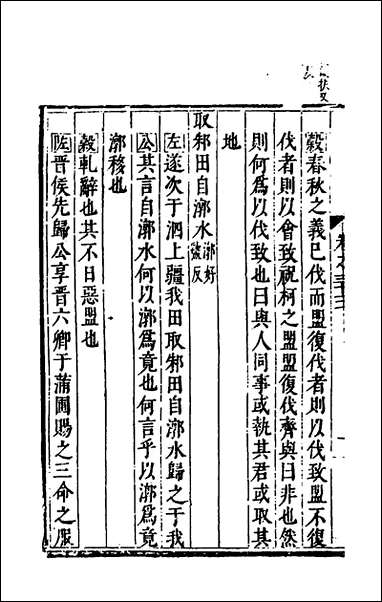 穀春秋之義已伐而盟復伐者則以伐致盟不復
伐者則以會致祝柯之盟盟復伐齊與曰非也然
則何爲以伐致也曰與人同事或執其君或取其
地
取邾田自漷水漷好虢反
左遂次于泗上疆我田取邾田自漷水歸之于我
公其言自漷水何以漷爲竟也何言乎以漷爲竟
漷移也
穀軋辭也其不日惡盟也
左晉侯先歸公享晉六卿于蒲圃賜之三命之服